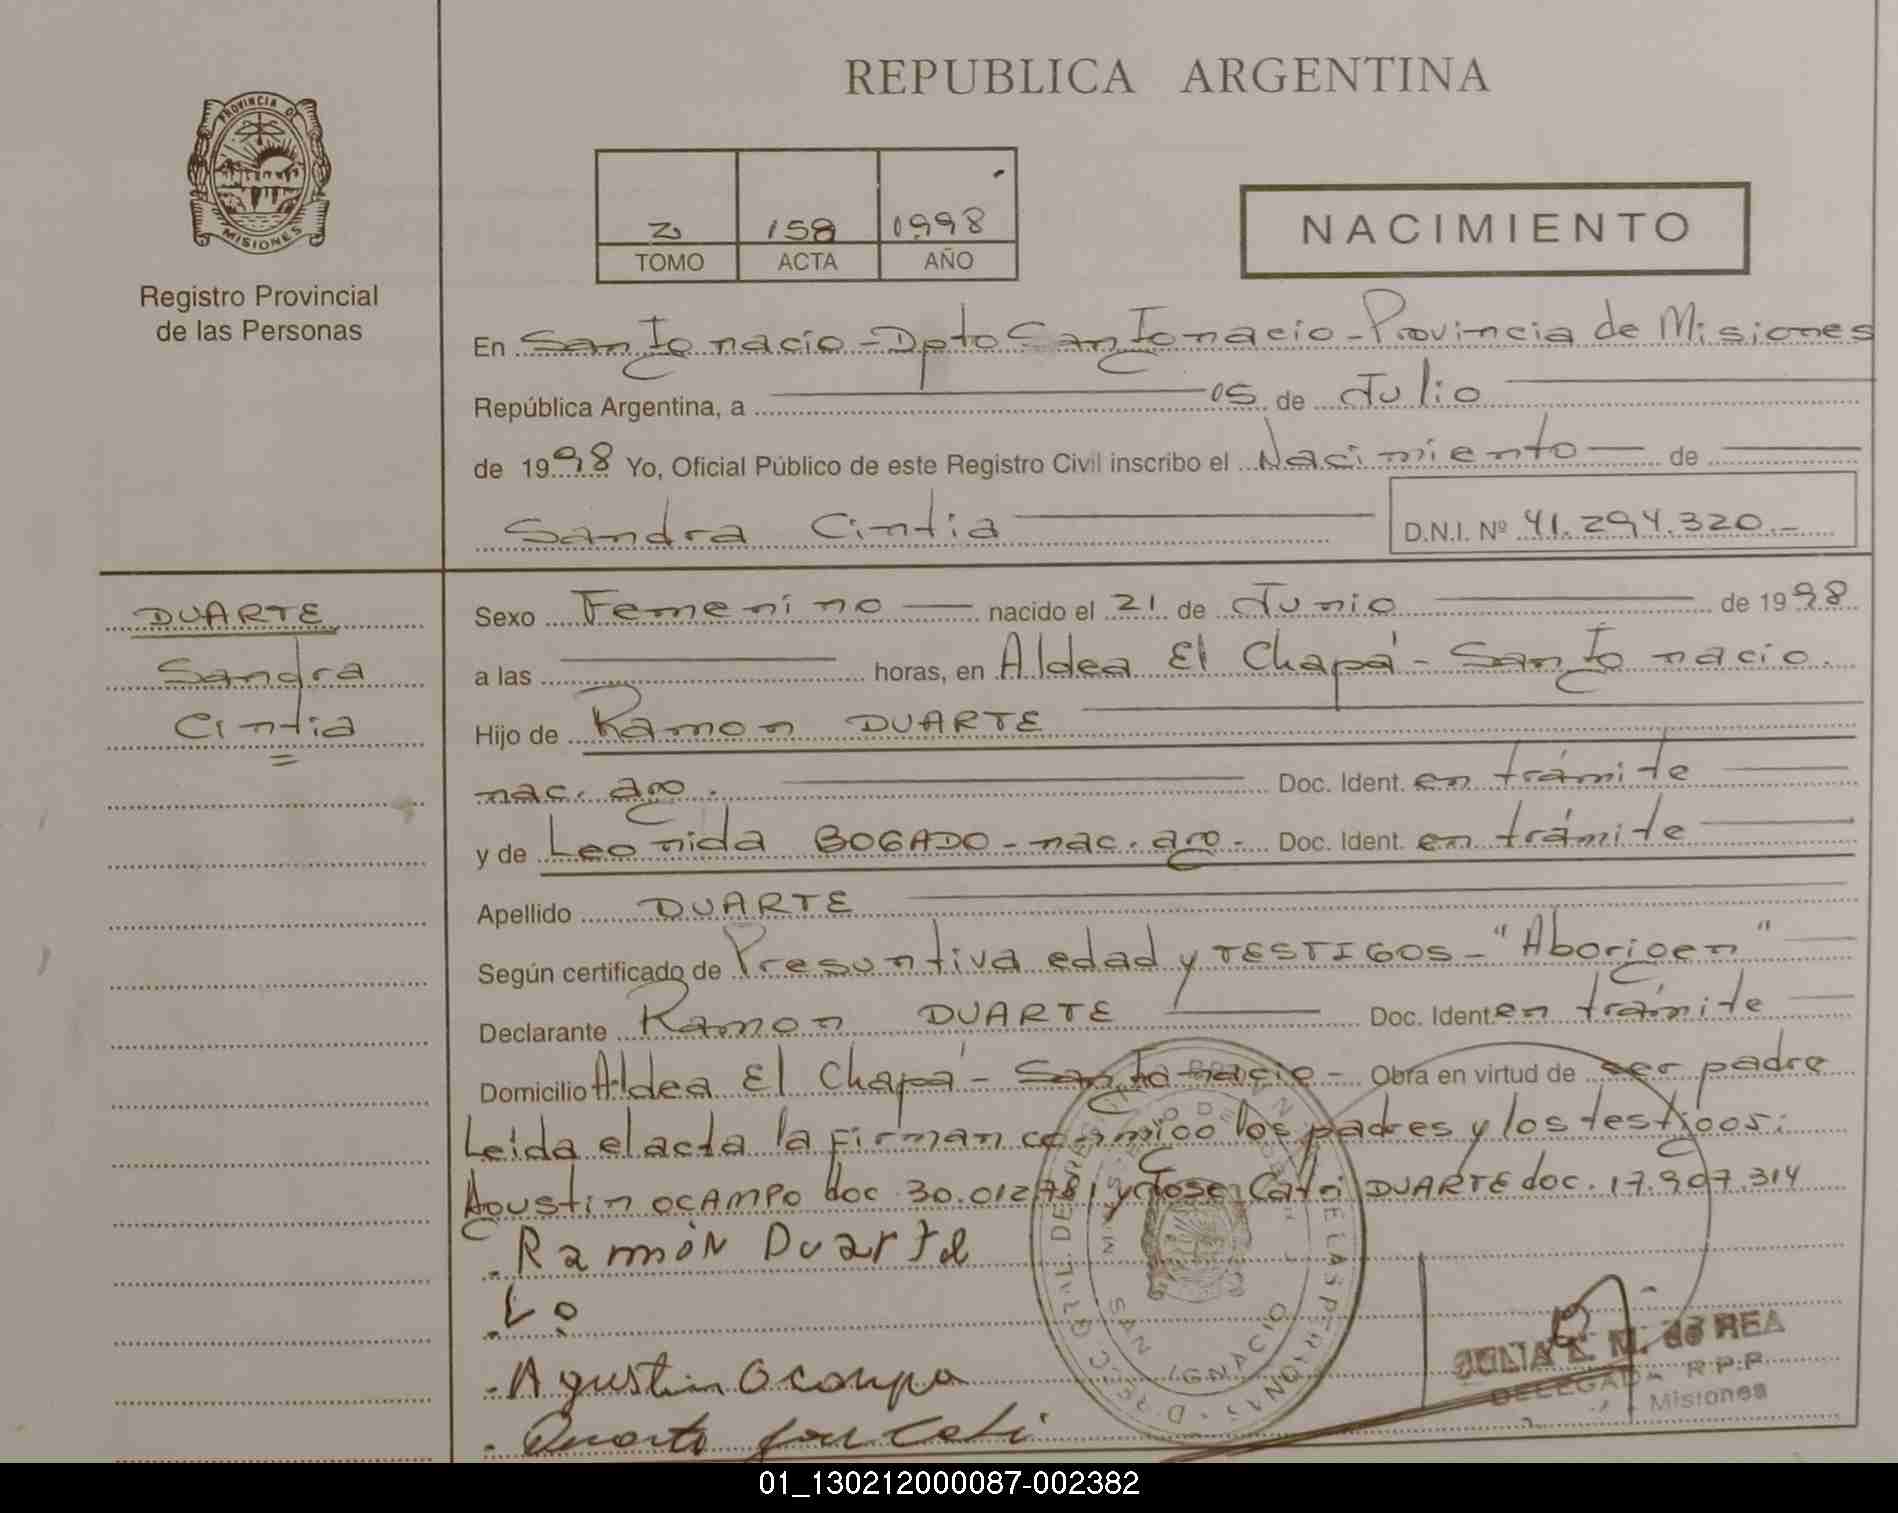 REPUBLICA ARGENTINA
PROVINCIA DE
MISIONES
Registro Provincial
de las Personas
2 158 1998
TOMO ACTA AÑO
NACIMIENTO
En San Ignacio - Dpto San Ignacio - Provincia de Misiones
República Argentina, a 05 de Julio
de 1998 Yo, Oficial Público de este Registro Civil inscribo el Nacimiento de
Sandra Cintia D.N.I. Nº 41.294.320.-
DUARTE
Sandra
Cintia
Sexo Femenino nacido el 21 de Junio de 1998
a las horas, en Aldea El Chapá - San Ignacio.
Hijo de Ramon DUARTE
nac. arg. Doc. Ident. en trámite
y de Leonida BOGADO - nac. arg - Doc. Ident. en trámite
Apellido DUARTE
Según certificado de Presuntiva edad y TESTIGOS - "Aborigen"
Declarante Ramon DUARTE Doc. Ident. en trámite
Domicilio Aldea El Chapá - San Ignacio - Obra en virtud de ser padre
Leida el acta la firman conmigo los padres y los testigos:
Agustin OCAMPO doc 30.012.781 y Jose Catri DUARTE doc. 17.907.314
Ramón Duarte
Lo
Agustin Ocampo
Duarte
SAN IGNACIO
JULIA E. M. de REA
DELEGADA R.P.P.
Misiones
01_130212000087-002382